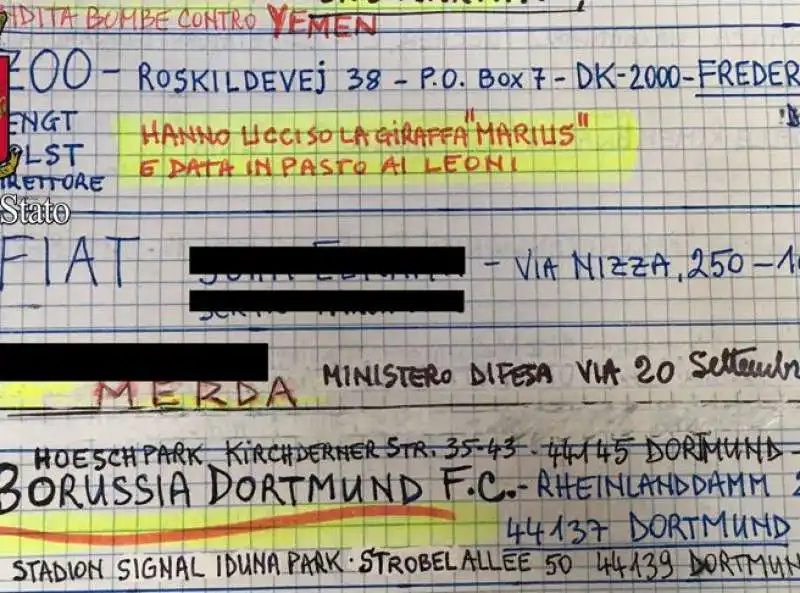 NDITA BOMBE CONTRO YEMEN
ZOO - ROSKILDEVEJ 38 - P.O. BOX 7 - DK-2000 - FREDER
ENGT
OLST
DIRETTORE
HANNO UCCISO LA GIRAFFA "MARIUS"
E DATA IN PASTO AI LEONI
Stato
FIAT - VIA NIZZA, 250 - 10
MERDA MINISTERO DIFESA VIA 20 Settembr
HOESCHPARK KIRCHDERNER STR. 35-43 - 44145 DORTMUND -
BORUSSIA DORTMUND F.C. - RHEINLANDDAMM 2
44137 DORTMUND
STADION SIGNAL IDUNA PARK · STROBELALLEE 50 44139 DORTMUN